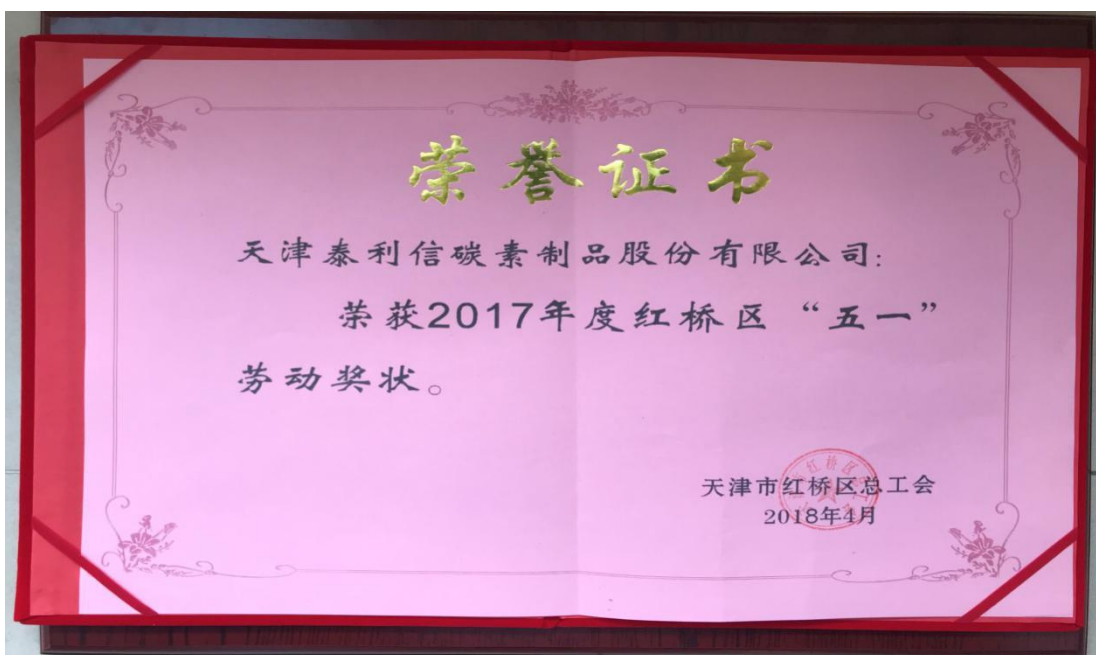 荣誉证书
天津泰利信碳素制品股份有限公司:
荣获2017年度红桥区“五一”
劳动奖状。
天津市红桥区总工会
2018年4月